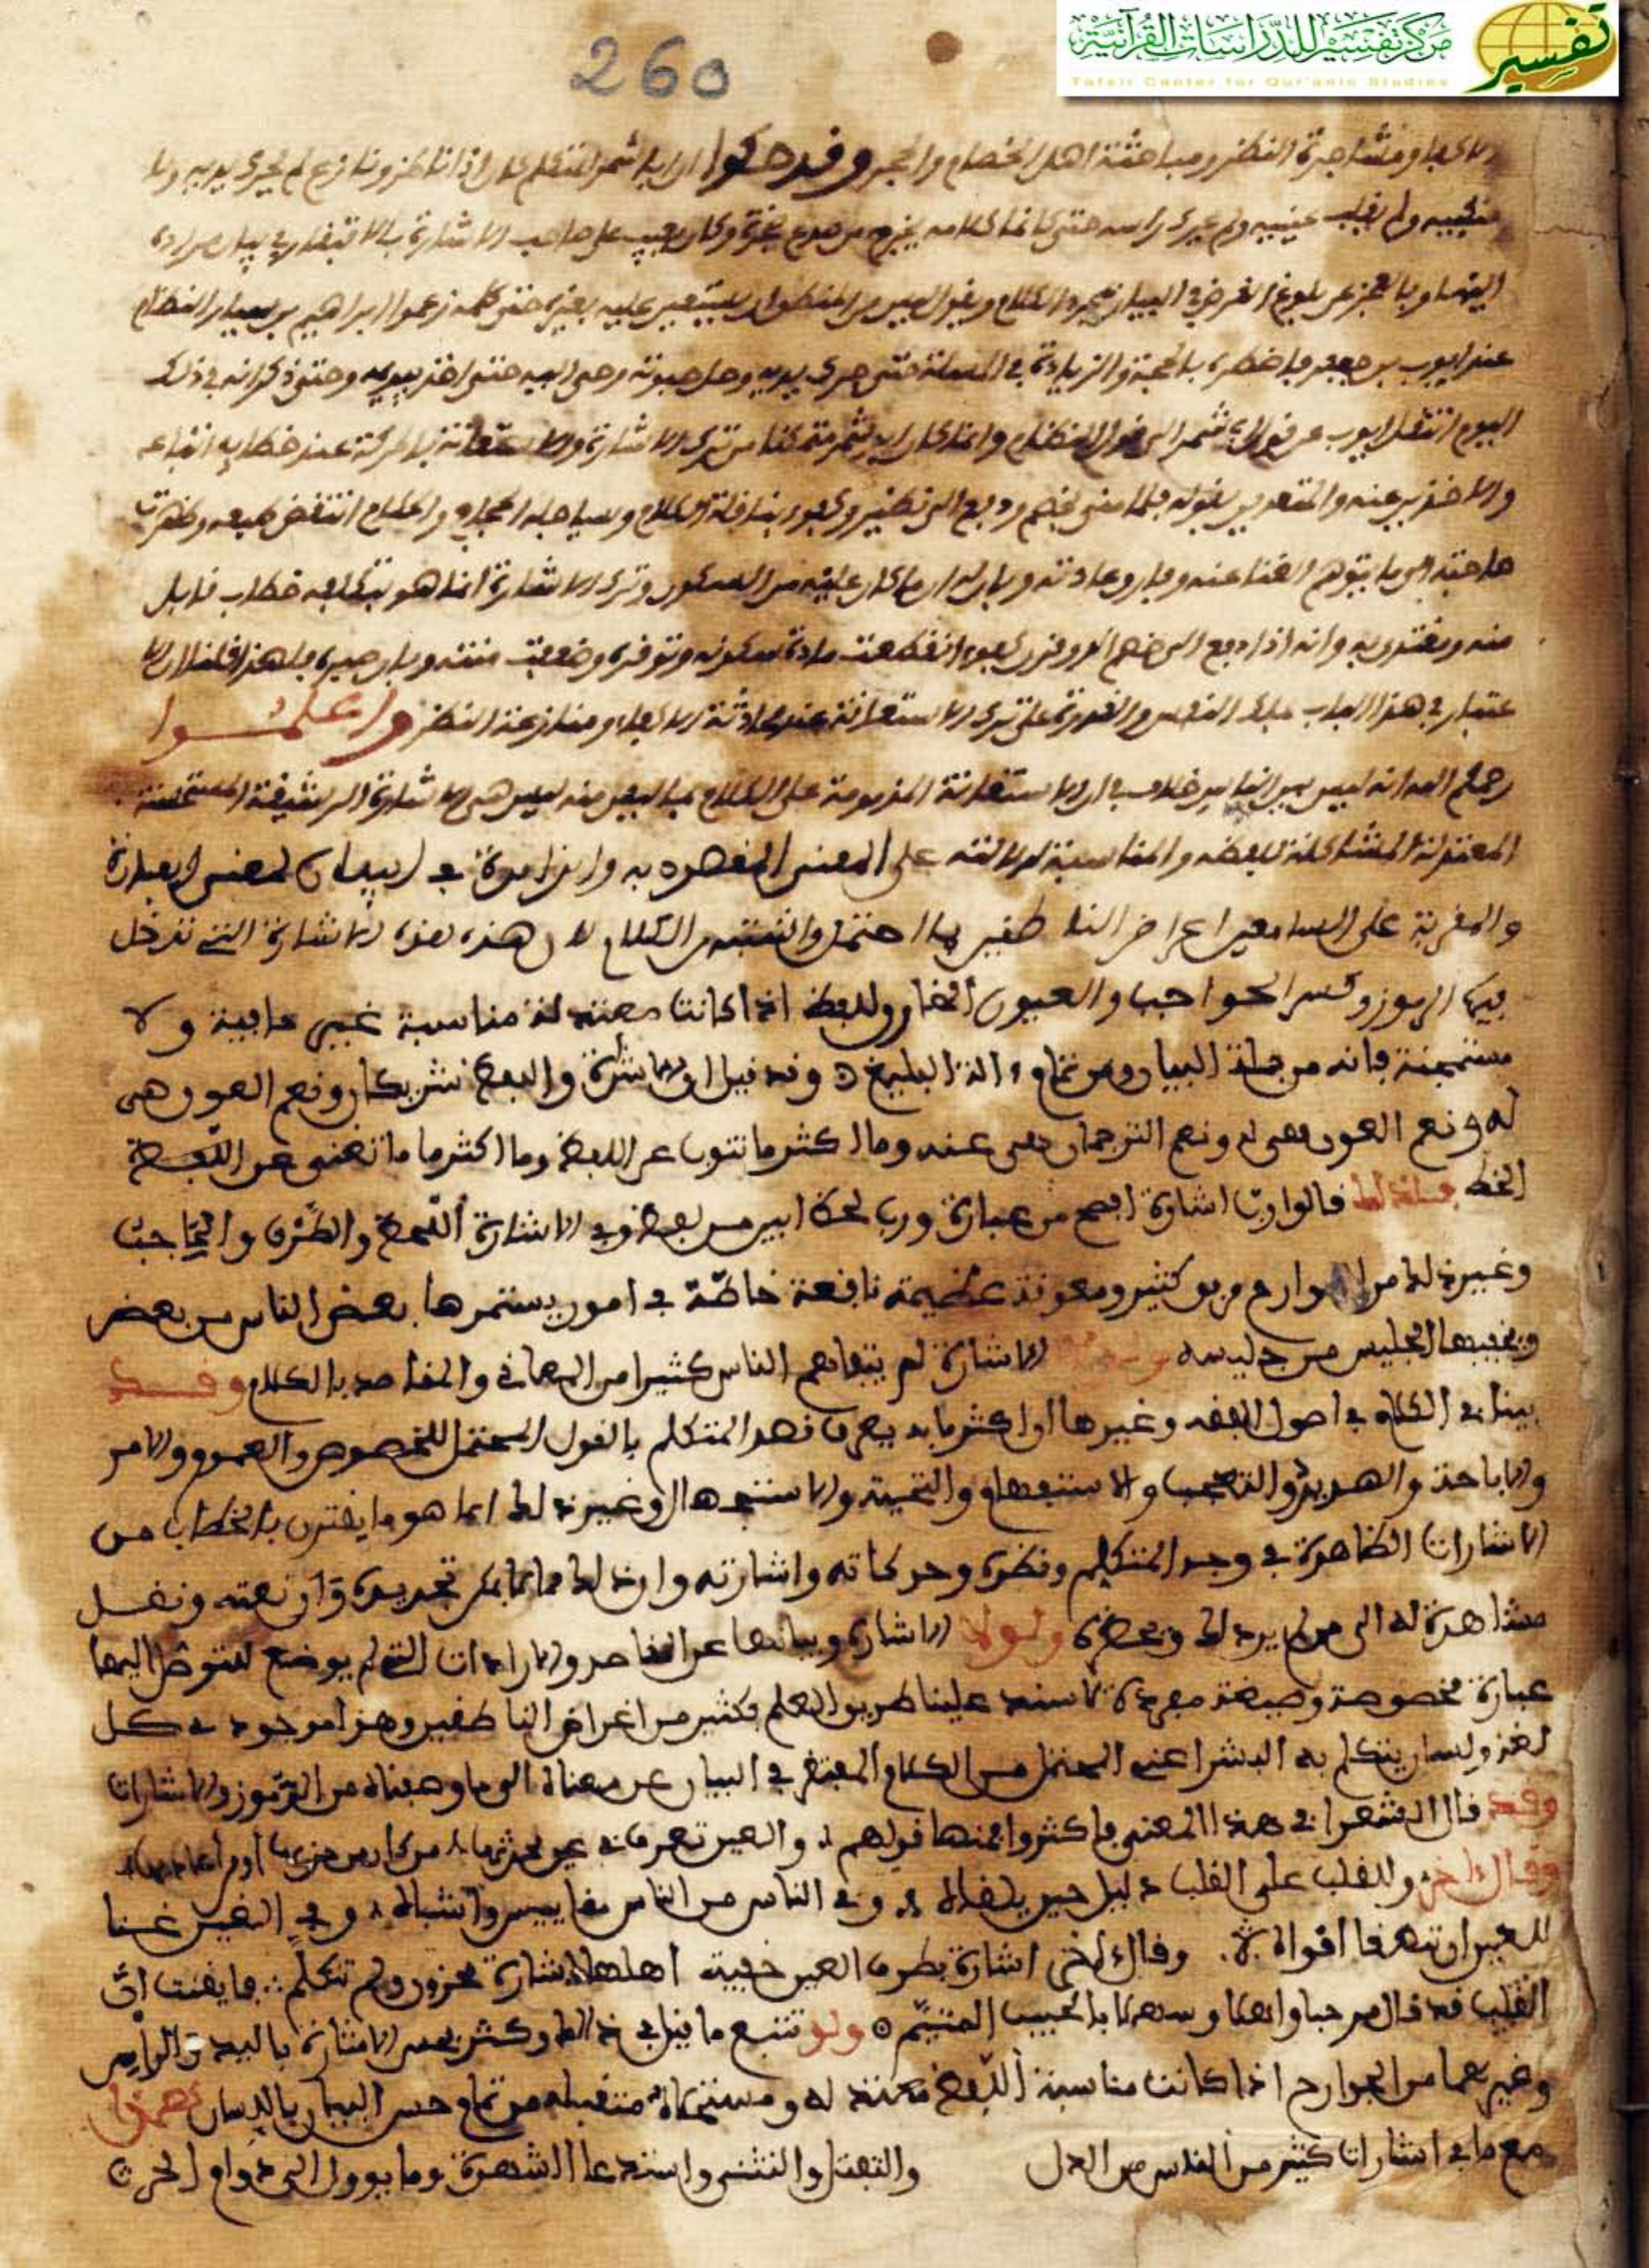 مركز تفسير للدراسات القرآنية
تفسير
Tafsir Center for Qur'anic Studies
260
ومشاجرة النظر ومباحثة اهل الخصام والحجر وقد حكوا ان ابا شمر المتكلم كان اذا ناظر ونازع لم يحرك يديه ولا
منكبيه ولم يقلب عينيه ولم يحرك راسه حتى كانما كلامه يخرج من صدع صخرة وكان يعيب على صاحب الاشارة بالافتقار في بيان مراده
اليها وبالعجز عن بلوغ الغرض في البيان بمجرد الكلام ويقول ليس من المنطق ان يستعين عليه بغيره حتى كلمه زعموا ابراهيم بن سيار النظام
عند ايوب بن جعفر فاضطره بالحجة والزيادة في المسئلة حتى حرك يديه وحل حبوته وحبى اليه حتى اخذ بيديه وحتى ذكر انه في ذلك
اليوم انتقل ايوب عن قول ابي شمر الى قول النظام وانما كان ابو شمر متمكنا من ترك الاشارة والاستعانة بالحركة عند خطابه اتباعه
والاخذين عنه والمقتدين بقوله فلما مني بخصم ودفع الى نظير
حاجته الى ما يتوهم الغنا عنه وفارق عادته وبان له ان ما كان عليه من السكون وترك الاشارة انما هو خطاب قابل
منه ومقتدي به وانه اذا دفع الى خصم الد وقرن كفوء انقطعت مادة سكونه وتوقره وضعفت منته وبان صبره فلهذا قلنا ان الا
عتبار في هذا الباب ملك النفس والقدرة على ترك الاستعانة عند محادثة الاكفاء ومنازعة النظر واعلموا
رحمكم الله انه ليس بين الناس خلاف في ان الاستعانة المذمومة على الكلام بما ليس منه ليس هي الاشارة الرشيقة المستحسنة
المعتدلة المشاكلة للفظه والمناسبة لدلالته على المعنى المقصود به والزايدة في البيان لمعنى العبارة
والمقربة على السامعين اغراض الناطقين بما احتمل واشتبه من الكلام لان هذه الاشارة التي تدخل
فيها الرموز وكسر الحواجب والعيون واللفظ اذا كانت معتدلة مناسبة غير جافية ولا
مستهجنة فانه من جملة البيان ومن تمام الة البليغ وقد قيل ان الاشارة واللفظ شريكان ونعم العون هي
له ونعم العون هي له ونعم الترجمان هي عنه وما اكثر ما تنوب عن اللفظ وما اكثر ما تغني عن اللفظ
الخط قالوا ورب اشارة افصح من عبارة ورب لحظ ابين من لفظ وفي الاشارة اللحظ والطرف والحاجب
وغير ذلك من الجوارح مرفق كثير ومعونة عظيمة نافعة خاصة في امور يسترها بعض الناس من بعض
ويخفيها الجليس من جليسه الاشارة لم يتفاهم الناس كثيرا من المعاني والمقاصد بالكلام وقد
بينا في الكلام في اصول الفقه وغيرها ان اكثر ما به يعرف قصد المتكلم بالقول المحتمل للخصوص والعموم والامر
والاباحة والتهديد والتعجب والاستفهام والتحية والاستجهال وغير ذلك انما هو ما يقترن بالخطاب من
الاشارات الظاهرة في وجه المتكلم ونظره وحركاته واشارته وان ذلك مما لا يمكن تحديده ونعته ونقل
مشاهدة له الى من لم ير ذلك ويحضره ولولا الاشارة وبيانها عن المقاصد والارادات التي لم يوضع لنتوصل اليها
عبارة مخصوصة وصيغة مفردة لانسد علينا طريق العلم بكثير من اغراض الناطقين وهذا موجود في كل
لغة ولسان يتكلم به البشر اعني المحتمل من الكلام المفتقر في البيان عن معناه الى ما وصفناه من الرموز والاشارات
وقد قال الشعرا في هذا المعنى فاكثروا فمنها قولهم والعين تعرف في عين محدثها من كان من حزبها او من اعاديها
وقال اخر وللقلب على القلب دليل حين يلقاه وفي الناس من الناس مقاييس واشباه وفي العين غنا
للعين ان تنطق افواه وقال اخر اشارت بطرف العين خيفة اهلها اشارة محزون ولم تتكلم فايقنت ان
القلب قد قال مرحبا واهلا وسهلا بالحبيب المتيم ولو تتبع ما قيل في ذلك وكثر حسن الاشارة باليد والراس
وغيرهما من الجوارح اذا كانت مناسبة اللفظ معتدلة من تمام حسن البيان باللسان هذا
مع ما في اشارات كثير من الناس من الدل والتفتل والتثني واستدعا الشهوة وما يوول الى دواع